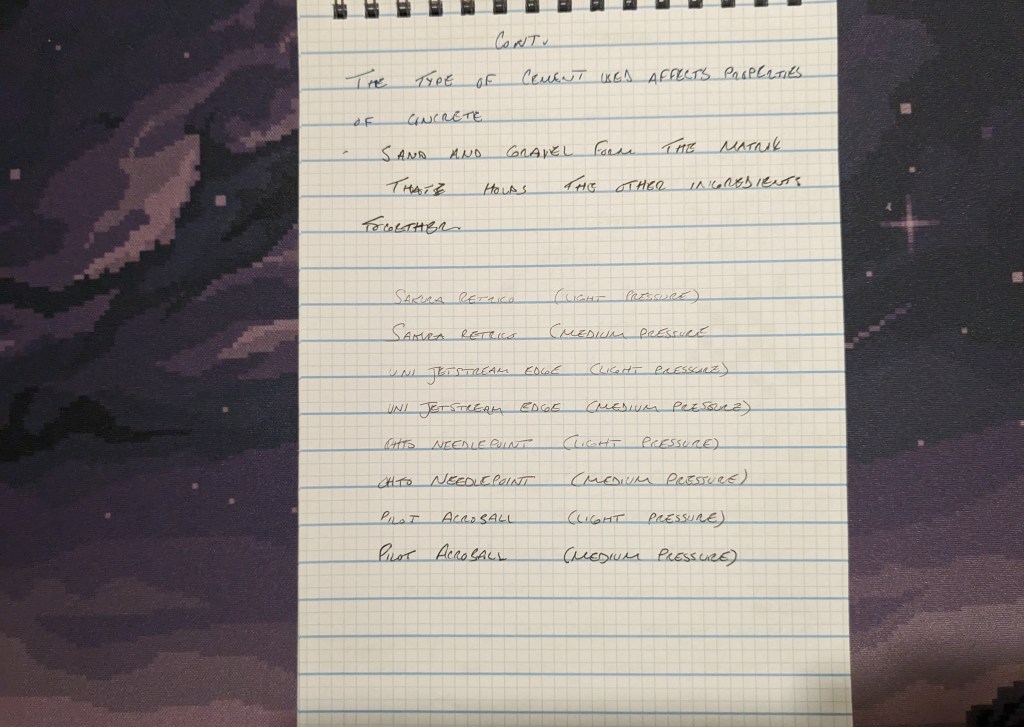 CONT.
THE TYPE OF CEMENT USED AFFECTS PROPERTIES
OF CONCRETE
- SAND AND GRAVEL FORM THE MATRIX
THAT HOLDS THE OTHER INGREDIENTS
TOGETHER
SAKURA RETRICO (LIGHT PRESSURE)
SAKURA RETRICO (MEDIUM PRESSURE
UNI JETSTREAM EDGE (LIGHT PRESSURE)
UNI JETSTREAM EDGE (MEDIUM PRESSURE)
OHTO NEEDLEPOINT (LIGHT PRESSURE)
OHTO NEEDLEPOINT (MEDIUM PRESSURE)
PILOT ACROBALL (LIGHT PRESSURE)
PILOT ACROBALL (MEDIUM PRESSURE)